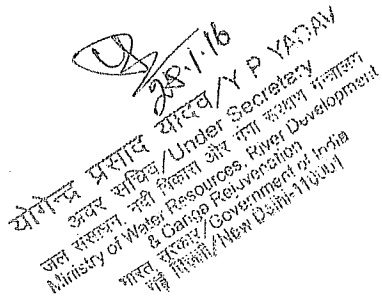 28.1.16
योगेन्द्र प्रसाद यादव/Y P YADAV
अवर सचिव/Under Secretary
जल संसाधन, नदी विकास और गंगा संरक्षण मंत्रालय
Ministry of Water Resources, River Development
& Ganga Rejuvenation
भारत सरकार/Government of India
नई दिल्ली/New Delhi-110001